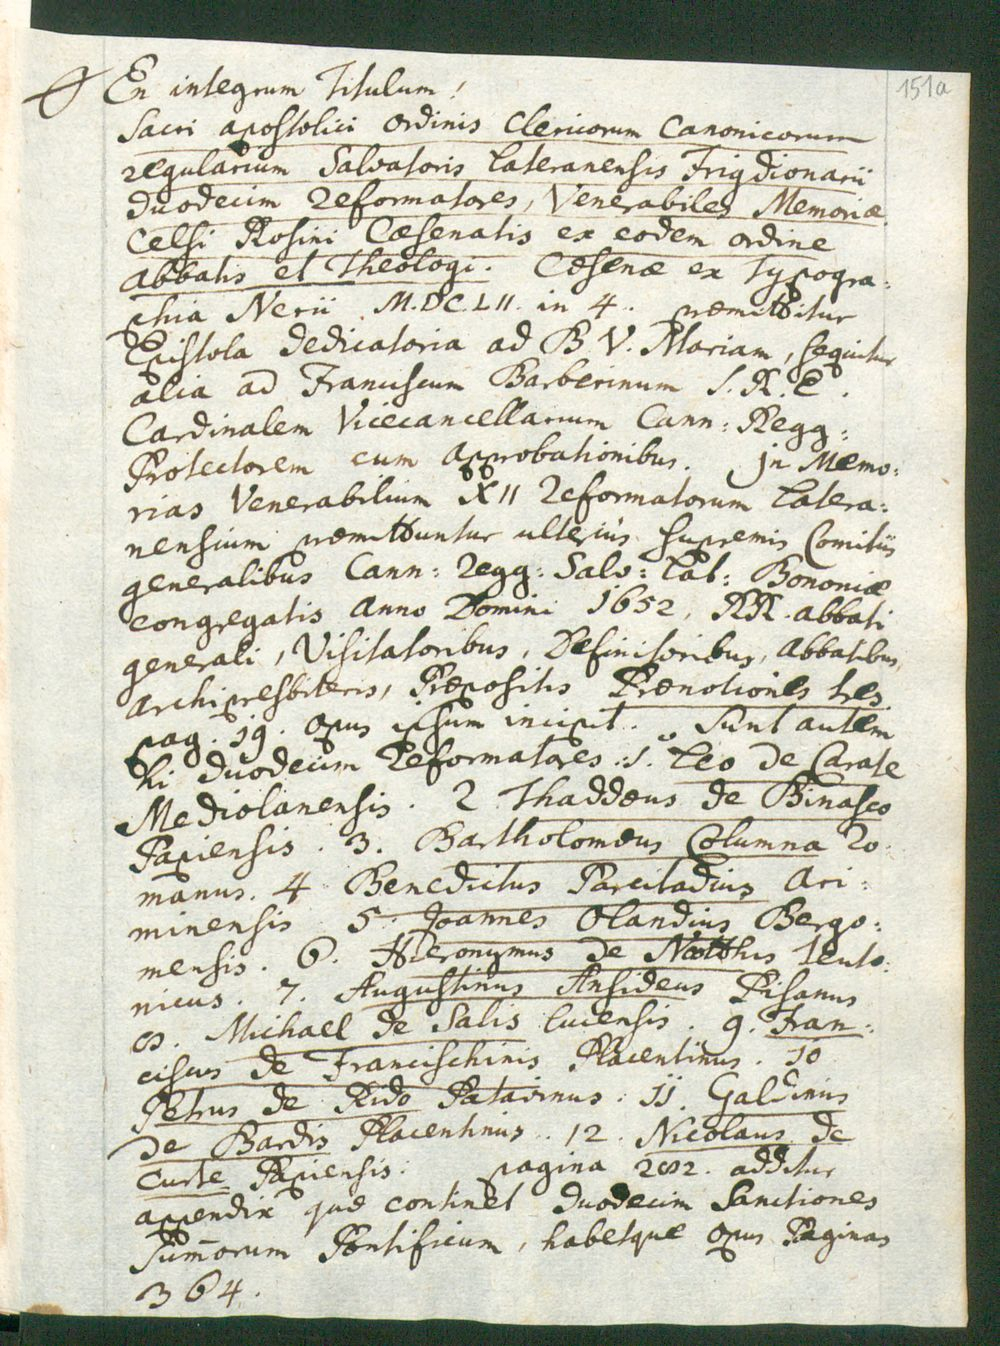 151a
En integrum Titulum!
Sacri apostolici ordinis Clericorum Canonicorum
regularium Salvatoris Lateranensis Frigdionarii
duodecim Reformatores, Venerabiles Memoriæ
Celsi Rosini Cæsenatis ex eodem ordine
abbatis et Theologi. Cæsenæ ex Typogra:
phia Nerii M.DC.LII. in 4. præmittitur
Epistola dedicatoria ad B V. Mariam, sequitur
alia ad Franciscum Barberinum S.R.E.
Cardinalem Vicecancellarium Cann: Regg:
Protectorem cum approbationibus. In Memo:
rias Venerabilium XII Reformatorum Latera:
nensium præmittuntur ulterius supremis Comitiis
generalibus Cann: Regg: Salv: Lat: Bononiæ
congregatis Anno Domini 1652, RR. abbati
generali, Visitatoribus, Definitoribus, Abbatibus,
Archipresbiteris, Præpositis Prænotiones tres
pag. 19. opus ipsum incipit. Sunt autem
hi duodecim Reformatores: 1. Leo de Carate
Mediolanensis. 2 Thaddæus de Binasco
Papiensis. 3. Bartholomæus Columna Ro
manus. 4 Benedictus Parcitadius Ari:
minensis 5. Joannes Olandius Bergo:
mensis. 6. Hieronymus de Teuto:
nicus. 7. Augustinus Ansideus Pisanus
8. Michael de Salis Lucensis. 9. Fran:
ciscus de Francischinis Placentinus. 10
Petrus de Rido Patavinus. 11. Galdinus
de Bardis Placentinus. 12. Nicolaus de
Curte Papiensis. pagina 282. additur
appendix quæ continet duodecim Sanctiones
Sum̄orum Pontificum, habetque opus Paginas
364.